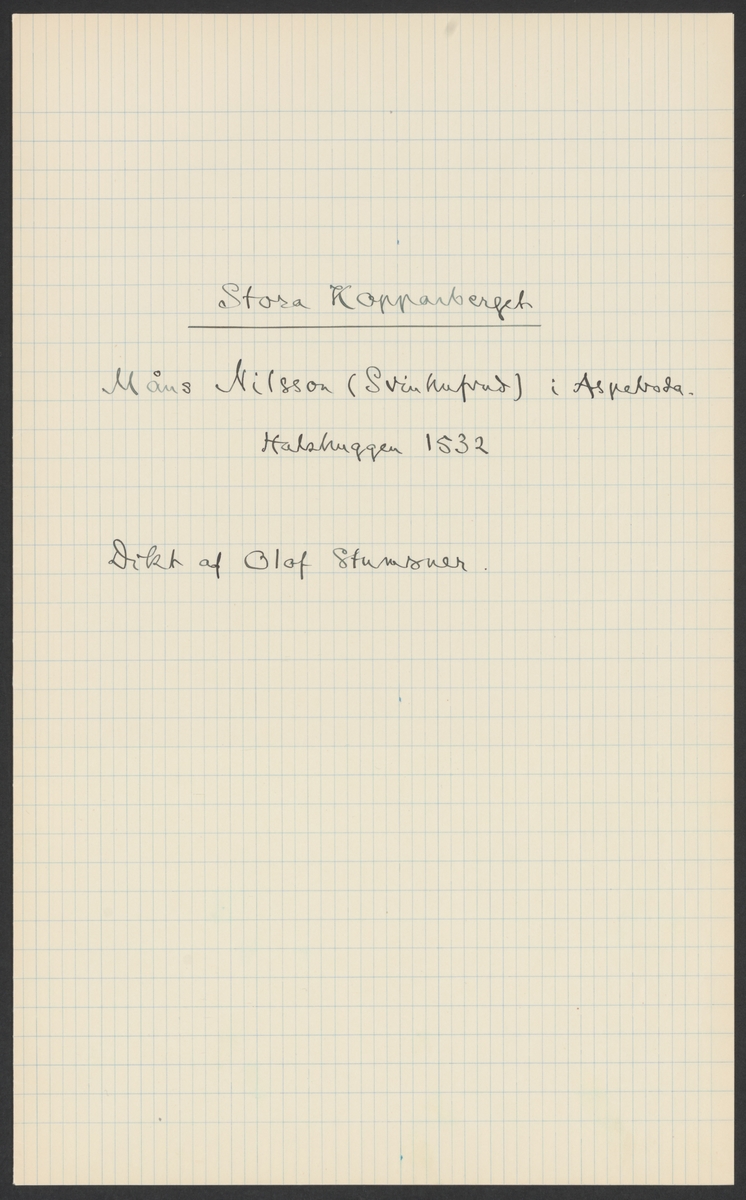 Stora Kopparberget
Måns Nilsson (Svinhufvud) i Aspeboda.
Halshuggen 1532
Dikt af Olof